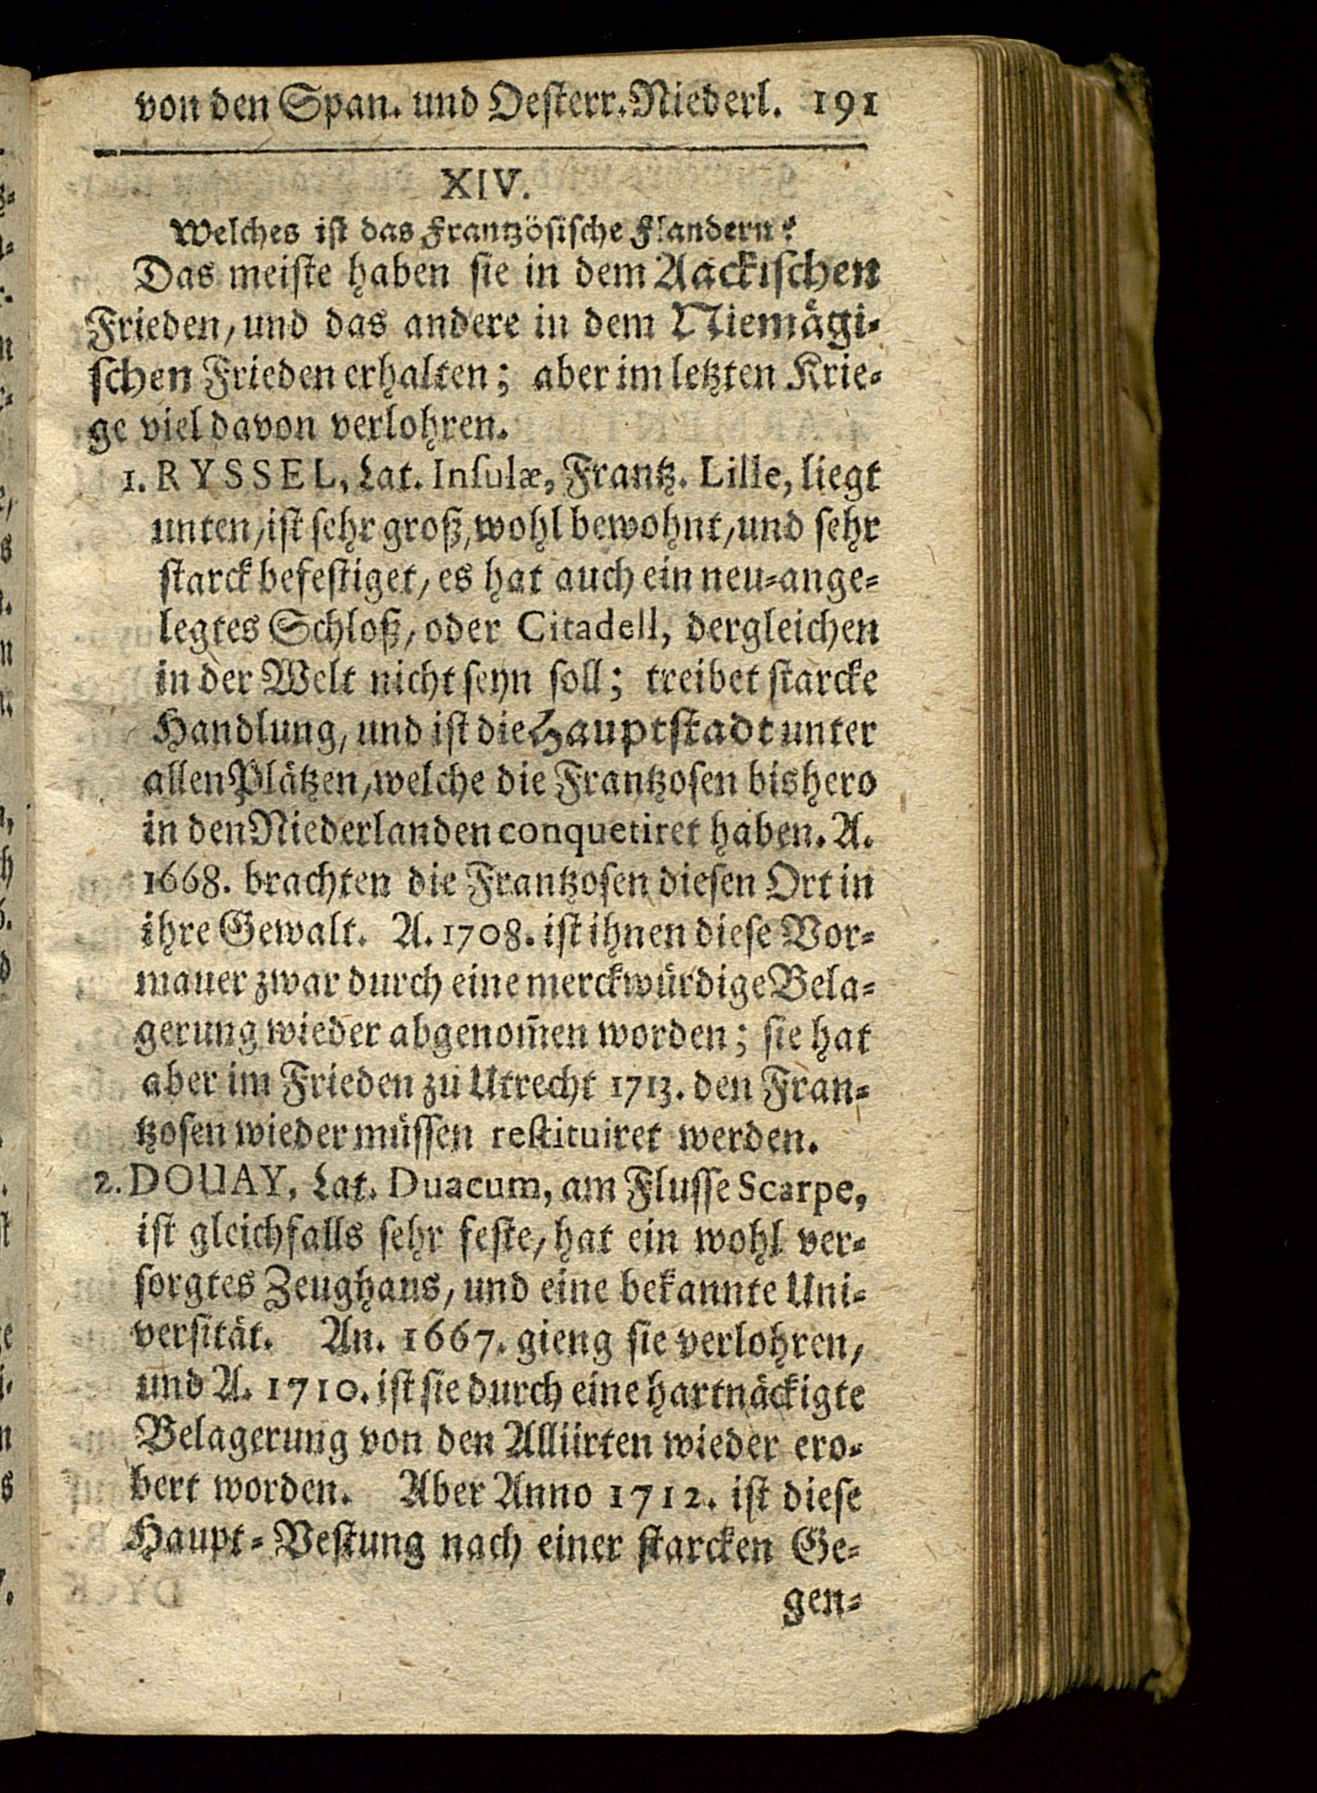 von den Span. und Oesterr. Niederl. 191
XIV.
Welches ist das Frantzösische Flandern?
Das meiste haben sie in dem Aackischen
Frieden, und das andere in dem Niemägi-
schen Frieden erhalten; aber im letzten Krie-
ge viel davon verlohren.
1. RYSSEL, Lat. Insulæ, Frantz. Lille, liegt
unten, ist sehr groß, wohl bewohnt, und sehr
starck befestiget, es hat auch ein neu-ange-
legtes Schloß, oder Citadell, dergleichen
in der Welt nicht seyn soll; treibet starcke
Handlung, und ist die Hauptstadt unter
allen Plätzen, welche die Frantzosen bishero
in den Niederlanden conquetiret haben. A.
1668. brachten die Frantzosen diesen Ort in
ihre Gewalt. A. 1708. ist ihnen diese Vor-
mauer zwar durch eine merckwürdige Bela-
gerung wieder abgenom̄en worden; sie hat
aber im Frieden zu Utrecht 1713. den Fran-
tzosen wieder müssen restituiret werden.
2. DOUAY, Lat. Duacum, am Flusse Scarpe,
ist gleichfalls sehr feste, hat ein wohl ver-
sorgtes Zeughaus, und eine bekannte Uni-
versität. An. 1667. gieng sie verlohren,
und A. 1710. ist sie durch eine hartnäckigte
Belagerung von den Alliirten wieder ero-
bert worden. Aber Anno 1712. ist diese
Haupt-Vestung nach einer starcken Ge-
gen-